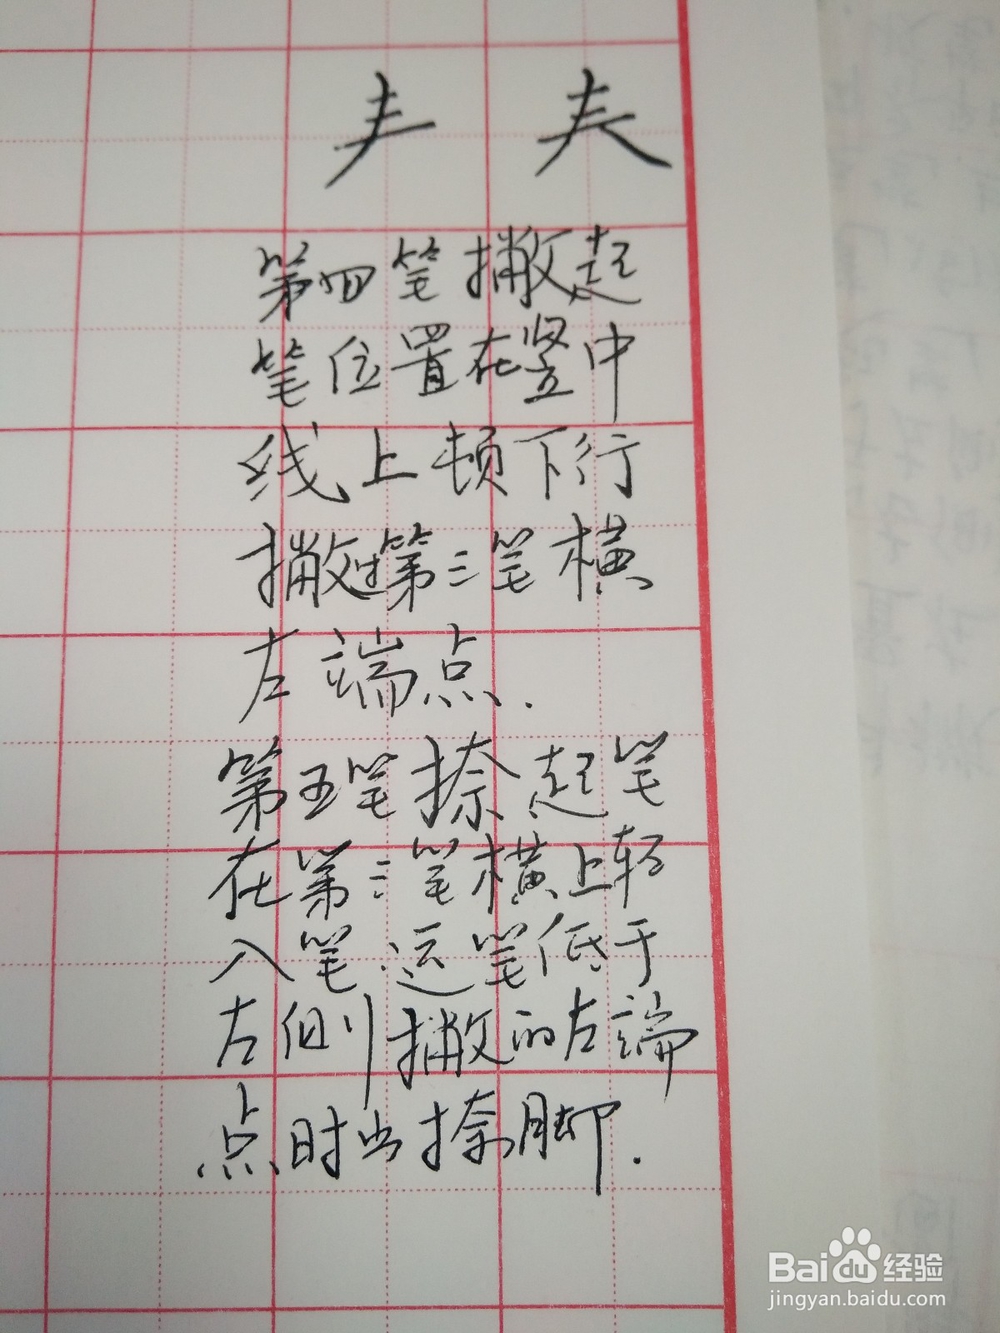 𡗗 𡗗
第四笔撇起
笔位置在竖中
线上顿下行
撇过第三笔横
左端点.
第五笔捺起笔
在第三笔横上轻
入笔运笔低于
左侧撇的左端
点时出捺脚.
Baidu经验
jingyan.baidu.com